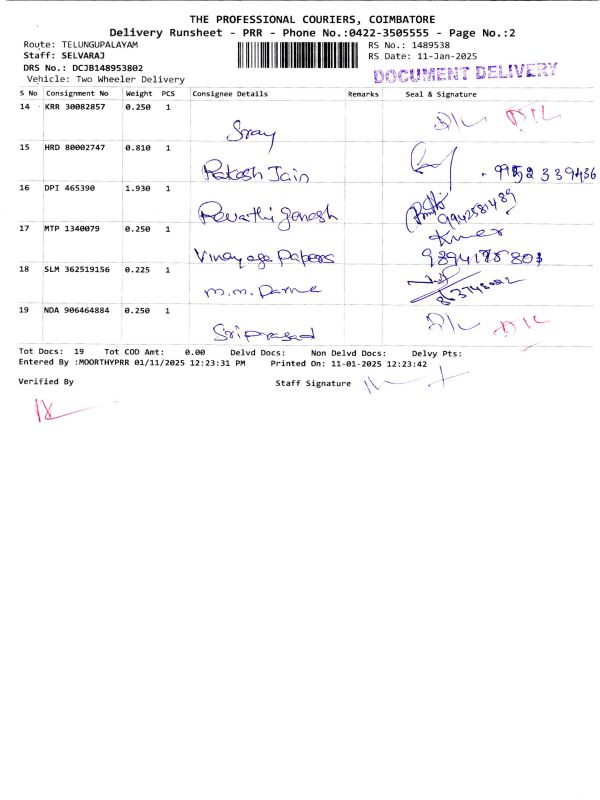 THE PROFESSIONAL COURIERS, COIMBATORE
Delivery Runsheet - PRR - Phone No.:0422-3505555 - Page No.:2
Route: TELUNGUPALAYAM
Staff: SELVARAJ
DRS No.: DCJB148953802
Vehicle: Two Wheeler Delivery
RS No.: 1489538
RS Date: 11-Jan-2025
DOCUMENT DELIVERY
S No Consignment No Weight PCS Consignee Details Remarks Seal & Signature
14 KRR 30082857 0.250 1 D/L D/L
15 HRD 80002747 0.810 1 Rakesh Jain
16 DPI 465390 1.930 1 Revathi ganesh 9942581489
17 MTP 1340079 0.250 1 Vinayaga Papers
18 SLM 362519156 0.225 1 m.m.
19 NDA 906464884 0.250 1 Sriprasad D/L D/L
Tot Docs: 19 Tot COD Amt: 0.00 Delvd Docs: Non Delvd Docs: Delvy Pts:
Entered By :MOORTHYPRR 01/11/2025 12:23:31 PM Printed On: 11-01-2025 12:23:42
Verified By Staff Signature